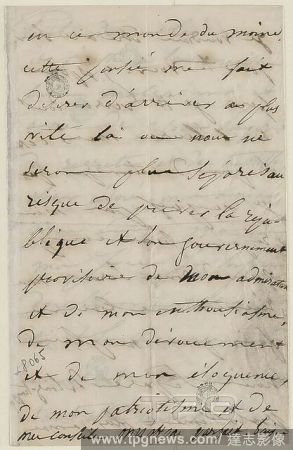 en ce monde du moins
cette pensée me fait
désirer d'arriver au plus
vite là où nous ne
serons plus séparés au
risque de priver la répu
blique et son gouvernement
provisoire de mon admiration
et de mon enthousiasme,
de mon dévouement
et de mon éloquence,
de mon patriotisme et de
mes conseils
8065
Alamy
www.tpgnews.com 達志影像